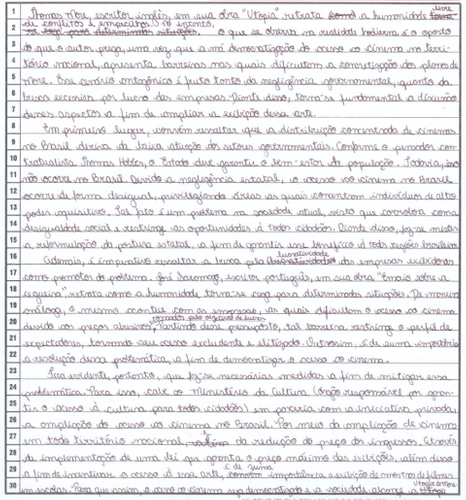 1 Thomas More, escritor inglês, em sua obra "Utopia" retrata a humanidade livre
2 de conflitos e empecilhos. No entanto, o que se observa na realidade hodierna é o oposto
3 do que o autor prega, uma vez que a má democratização do acesso ao cinema no terri-
4 tório nacional, apresenta barreiras nas quais dificultam a concretização dos planos de
5 More. Esse cenário antagônico é fruto tanto da negligência governamental, quanto da
6 busca excessiva por lucro das empresas. Diante disso, torna-se fundamental a discussão
7 desses aspectos a fim de ampliar a exibição dessa arte.
8 Em primeiro lugar, convém ressaltar que a distribuição concentrada de cinemas
9 no Brasil deriva da baixa atuação dos setores governamentais. Conforme o pensador con-
10 tratualista Thomas Hobbes, o Estado deve garantir o bem-estar da população. Todavia, isso
11 não ocorre no Brasil. Devido a negligência estatal, o acesso ao cinema no Brasil
12 ocorre de forma desigual, privilegiando áreas as quais concentram indivíduos de alto
13 poder aquisitivo. Tal fato é um problema na sociedade atual, visto que corrobora com a
14 desigualdade social e restringe as oportunidades à todos cidadãos. Diante disso, faz-se mister
15 a reformulação da postura estatal, a fim de garantir esse benefício à todas regiões brasileiras
16 Ademais, é imperativo ressaltar a busca pela lucratividade das empresas exibidoras
17 como promotor do problema. José Saramago, escritor português, em sua obra "Ensaio sobre a
18 cegueira", retrata como a humanidade torna-se cega para determinadas situações. De maneira
19 análoga, o mesmo acontece com as empresas, as quais dificultam o acesso ao cinema
20 devido aos preços abusivos, Partindo desse pressuposto, tal barreira restringe o perfil de
21 expectadores, tornando seu acesso excludente e elitizado. Outrossim, é de suma importância
22 a resolução dessa problemática, a fim de democratizar o acesso ao cinema.
23 Fica evidente, portanto, que faz-se necessárias medidas a fim de mitigar essa
24 problemática. Para isso, cabe ao Ministério da Cultura (órgão responsável por garan-
25 tir o acesso à cultura para todos cidadãos) em parceria com a iniciativa privada,
26 a ampliação do acesso ao cinema no Brasil. Por meio da ampliação de cinemas
27 em todo território nacional, da redução do preço dos ingressos, através
28 da implementação de uma lei que garanta o preço máximo das exibições, além disso
29 a fim de incentivar o acesso a essa arte, é de suma importância a exibição de amostras de filmes
30 em escolas. Para que assim, o acesso ao cinema seja democratizado e a sociedade alcance a Utopia de More